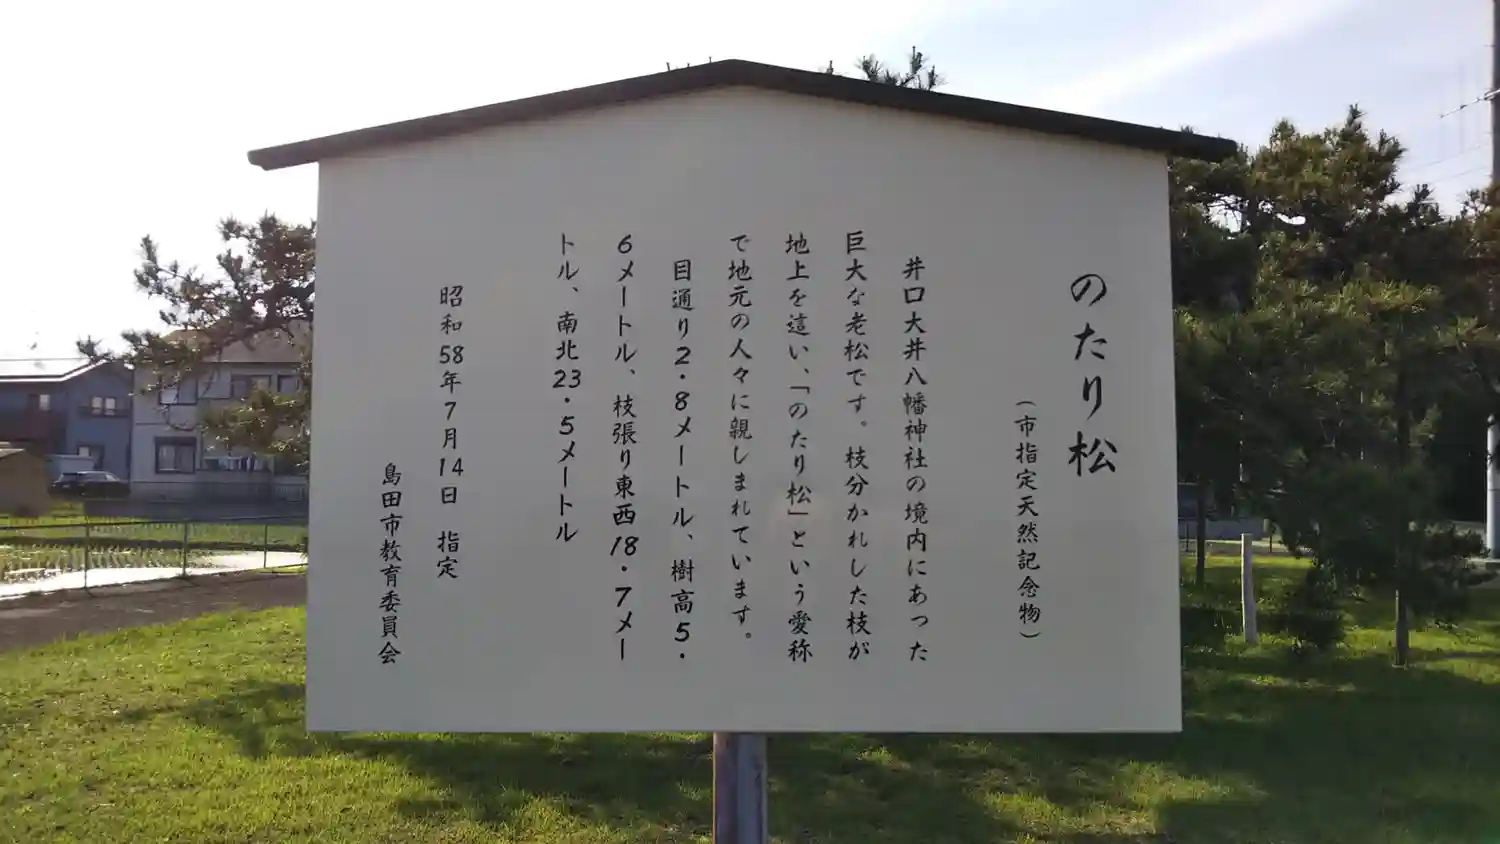 のたり松
(市指定天然記念物)
井口大井八幡神社の境内にあった
巨大な老松です。枝分かれした枝が
地上を這い、「のたり松」という愛称
で地元の人々に親しまれています。
目通り2・8メートル、樹高5・
6メートル、枝張り東西18・7メー
トル、南北23・5メートル
昭和58年7月14日 指定
島田市教育委員会